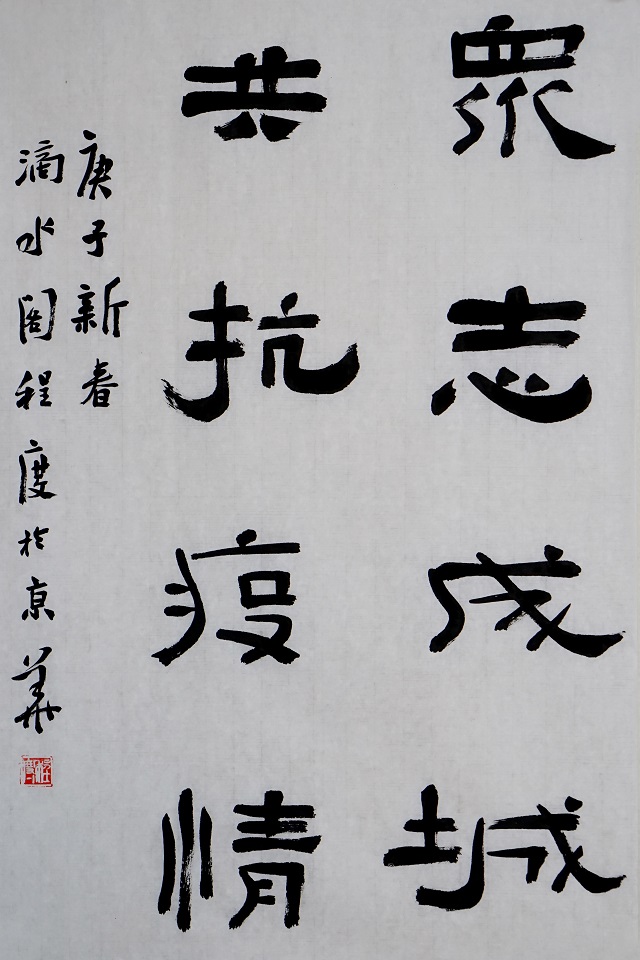 眾志成城
共抗疫情
庚子新春
滴水阁程度於京華
程度